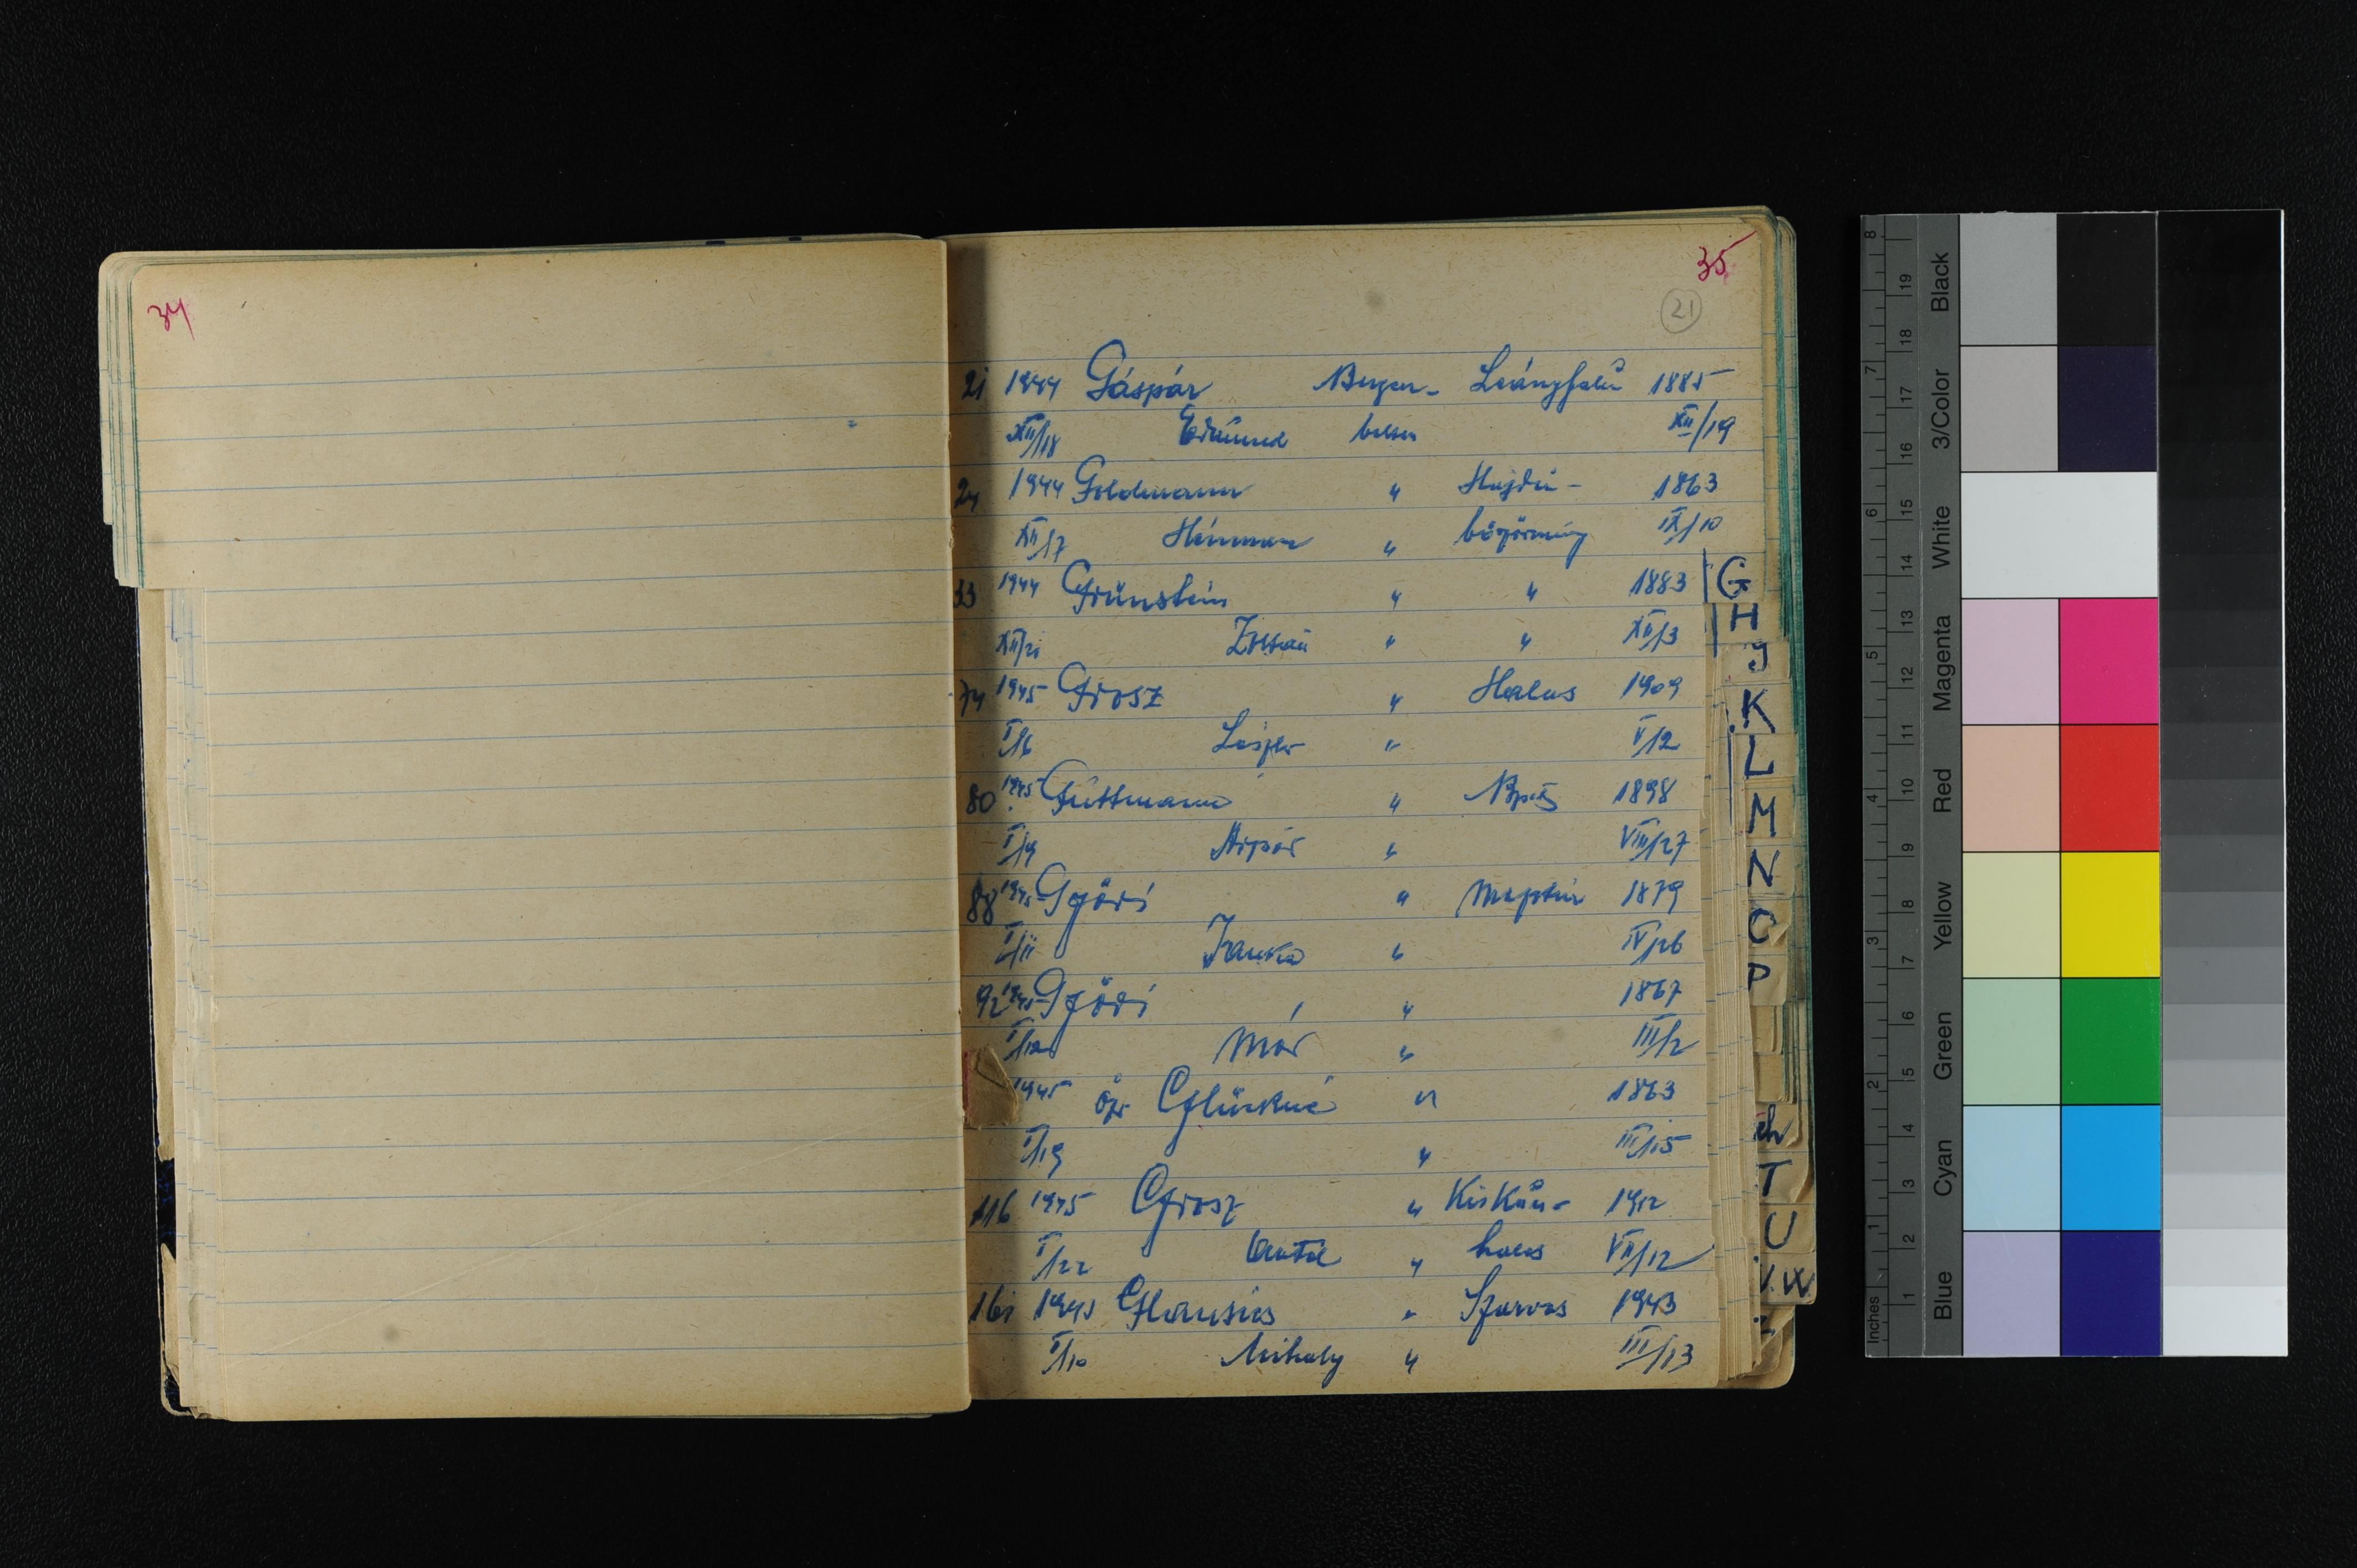 34
35
21
21 1944 Gáspár Bergen- Leányfalu 1885
XII/18 Edmund belsen XII/19
24 1944 Goldmann " Hajdu- 1863
XII/17 Hermann " böszörmény IX/10
33 1944 Grünstein " " 1883
XII/21 Zoltán " " XII/3
74 1945 Grosz " Halas 1909
I/6 László " V/2
80 1945 Guttmann " Bpest 1898
I/9 Árpád " VIII/27
88 1945 Győri " 1879
I/11 Janka " IV/26
92 1945 Győri " 1867
I/12 Mór " III/2
1945 öz. Glückné " 1863
I/19 " III/15
116 1945 Grosz " Kiskun- 1912
I/22 Antal " halas VII/12
161 1945 Glausius " Szarvas 1943
I/10 Mihály " III/13
G
H
J
K
L
M
N
O
P
ch
T
U
V.W
Z
Inches
1 2 3 4 5 6 7 8
1 2 3 4 5 6 7 8 9 10 11 12 13 14 15 16 17 18 19
Blue Cyan Green Yellow Red Magenta White 3/Color Black